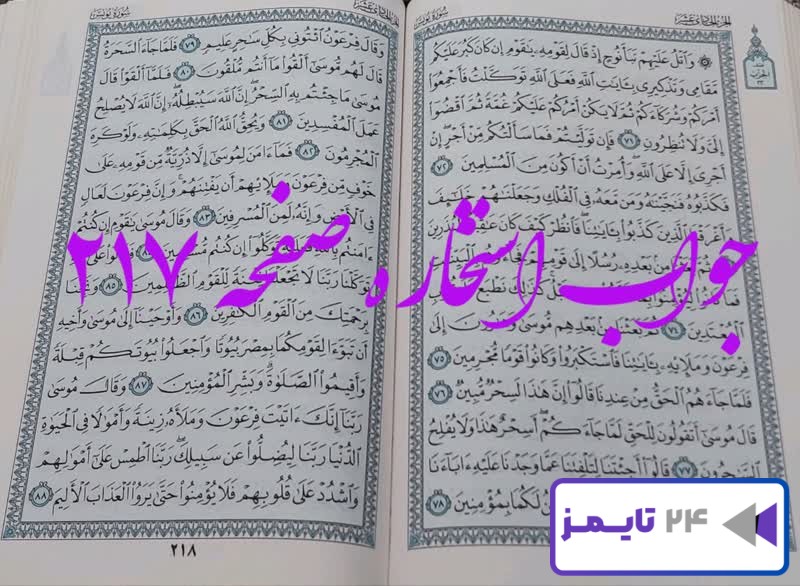 الجزء الحادي عشر
سورة يونس
۞ وَٱتۡلُ عَلَيۡهِمۡ نَبَأَ نُوحٍ إِذۡ قَالَ لِقَوۡمِهِۦ يَٰقَوۡمِ إِن كَانَ كَبُرَ عَلَيۡكُم
مَّقَامِي وَتَذۡكِيرِي بِـَٔايَٰتِ ٱللَّهِ فَعَلَى ٱللَّهِ تَوَكَّلۡتُ فَأَجۡمِعُوٓاْ
أَمۡرَكُمۡ وَشُرَكَآءَكُمۡ ثُمَّ لَا يَكُنۡ أَمۡرُكُمۡ عَلَيۡكُمۡ غُمَّةٗ ثُمَّ ٱقۡضُوٓاْ
إِلَيَّ وَلَا تُنظِرُونِ ٧١ فَإِن تَوَلَّيۡتُمۡ فَمَا سَأَلۡتُكُم مِّنۡ أَجۡرٍۖ إِنۡ
أَجۡرِيَ إِلَّا عَلَى ٱللَّهِۖ وَأُمِرۡتُ أَنۡ أَكُونَ مِنَ ٱلۡمُسۡلِمِينَ ٧٢
فَكَذَّبُوهُ فَنَجَّيۡنَٰهُ وَمَن مَّعَهُۥ فِي ٱلۡفُلۡكِ وَجَعَلۡنَٰهُمۡ خَلَٰٓئِفَ
وَأَغۡرَقۡنَا ٱلَّذِينَ كَذَّبُواْ بِـَٔايَٰتِنَاۖ فَٱنظُرۡ كَيۡفَ كَانَ عَٰقِبَةُ
مِنۢ بَعۡدِهِۦ رُسُلًا إِلَىٰ قَوۡمِهِمۡ
كَذَٰلِكَ نَطۡبَعُ
ٱلۡمُعۡتَدِينَ ٧٤ ثُمَّ بَعَثۡنَا مِنۢ بَعۡدِهِم مُّوسَىٰ وَهَٰرُونَ إِلَىٰ
فِرۡعَوۡنَ وَمَلَإِيْهِۦ بِـَٔايَٰتِنَا فَٱسۡتَكۡبَرُواْ وَكَانُواْ قَوۡمٗا مُّجۡرِمِينَ ٧٥
فَلَمَّا جَآءَهُمُ ٱلۡحَقُّ مِنۡ عِندِنَا قَالُوٓاْ إِنَّ هَٰذَا لَسِحۡرٞ مُّبِينٞ ٧٦
قَالَ مُوسَىٰٓ أَتَقُولُونَ لِلۡحَقِّ لَمَّا جَآءَكُمۡۖ أَسِحۡرٌ هَٰذَا وَلَا يُفۡلِحُ
ٱلسَّٰحِرُونَ ٧٧ قَالُوٓاْ أَجِئۡتَنَا لِتَلۡفِتَنَا عَمَّا وَجَدۡنَا عَلَيۡهِ ءَابَآءَنَا
لَكُمَا بِمُؤۡمِنِينَ ٧٨
الجزء الحادي عشر
سورة يونس
وَقَالَ فِرۡعَوۡنُ ٱئۡتُونِي بِكُلِّ سَٰحِرٍ عَلِيمٖ ٧٩ فَلَمَّا جَآءَ ٱلسَّحَرَةُ
قَالَ لَهُم مُّوسَىٰٓ أَلۡقُواْ مَآ أَنتُم مُّلۡقُونَ ٨٠ فَلَمَّآ أَلۡقَوۡاْ قَالَ
مُوسَىٰ مَا جِئۡتُم بِهِ ٱلسِّحۡرُۖ إِنَّ ٱللَّهَ سَيُبۡطِلُهُۥٓ إِنَّ ٱللَّهَ لَا يُصۡلِحُ
عَمَلَ ٱلۡمُفۡسِدِينَ ٨١ وَيُحِقُّ ٱللَّهُ ٱلۡحَقَّ بِكَلِمَٰتِهِۦ وَلَوۡ كَرِهَ
ٱلۡمُجۡرِمُونَ ٨٢ فَمَآ ءَامَنَ لِمُوسَىٰٓ إِلَّا ذُرِّيَّةٞ مِّن قَوۡمِهِۦ عَلَىٰ
خَوۡفٖ مِّن فِرۡعَوۡنَ وَمَلَإِيْهِمۡ أَن يَفۡتِنَهُمۡۚ وَإِنَّ فِرۡعَوۡنَ لَعَالٖ
فِي ٱلۡأَرۡضِ وَإِنَّهُۥ لَمِنَ ٱلۡمُسۡرِفِينَ ٨٣ وَقَالَ مُوسَىٰ يَٰقَوۡمِ إِن كُنتُمۡ
ءَامَنتُم بِٱللَّهِ فَعَلَيۡهِ تَوَكَّلُوٓاْ إِن كُنتُم مُّسۡلِمِينَ ٨٤ فَقَالُواْ عَلَى
تَوَكَّلۡنَا رَبَّنَا لَا تَجۡعَلۡنَا فِتۡنَةٗ لِّلۡقَوۡمِ ٱلظَّٰلِمِينَ ٨٥ وَنَجِّنَا
بِرَحۡمَتِكَ مِنَ ٱلۡقَوۡمِ ٱلۡكَٰفِرِينَ ٨٦ وَأَوۡحَيۡنَآ إِلَىٰ مُوسَىٰ وَأَخِيهِ
أَن تَبَوَّءَا لِقَوۡمِكُمَا بِمِصۡرَ بُيُوتٗا وَٱجۡعَلُواْ بُيُوتَكُمۡ قِبۡلَةٗ
وَأَقِيمُواْ ٱلصَّلَوٰةَۗ وَبَشِّرِ ٱلۡمُؤۡمِنِينَ ٨٧ وَقَالَ مُوسَىٰ
رَبَّنَآ إِنَّكَ ءَاتَيۡتَ فِرۡعَوۡنَ وَمَلَأَهُۥ زِينَةٗ وَأَمۡوَٰلٗا فِي ٱلۡحَيَوٰةِ
ٱلدُّنۡيَا رَبَّنَا لِيُضِلُّواْ عَن سَبِيلِكَۖ رَبَّنَا ٱطۡمِسۡ عَلَىٰٓ أَمۡوَٰلِهِمۡ
وَٱشۡدُدۡ عَلَىٰ قُلُوبِهِمۡ فَلَا يُؤۡمِنُواْ حَتَّىٰ يَرَوُاْ ٱلۡعَذَابَ ٱلۡأَلِيمَ ٨٨
٢١٨
جواب استخاره صفحه ۲۱۷
۲۴ تایمز